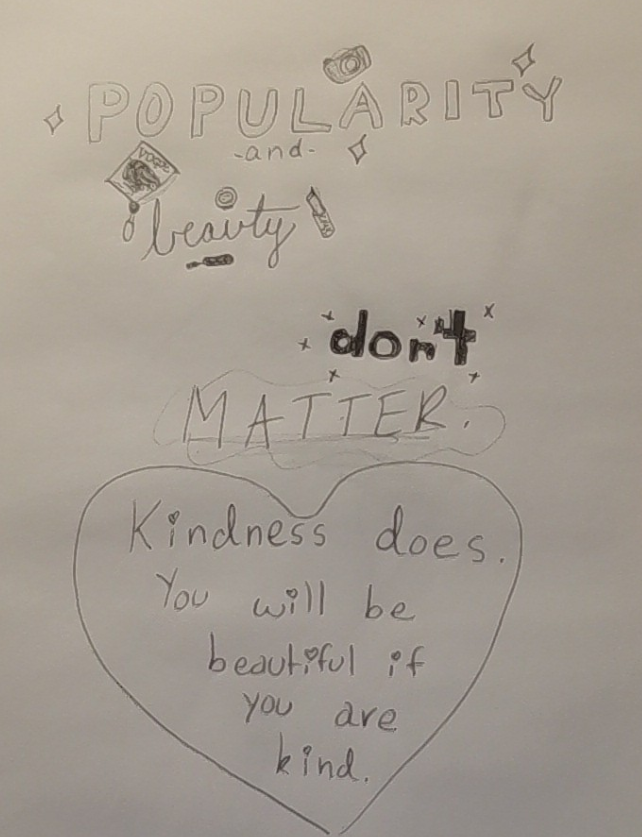 POPULARITY
-and-
VOGUE
beauty
don't
MATTER.
Kindness does.
You will be
beautiful if
you are
kind.